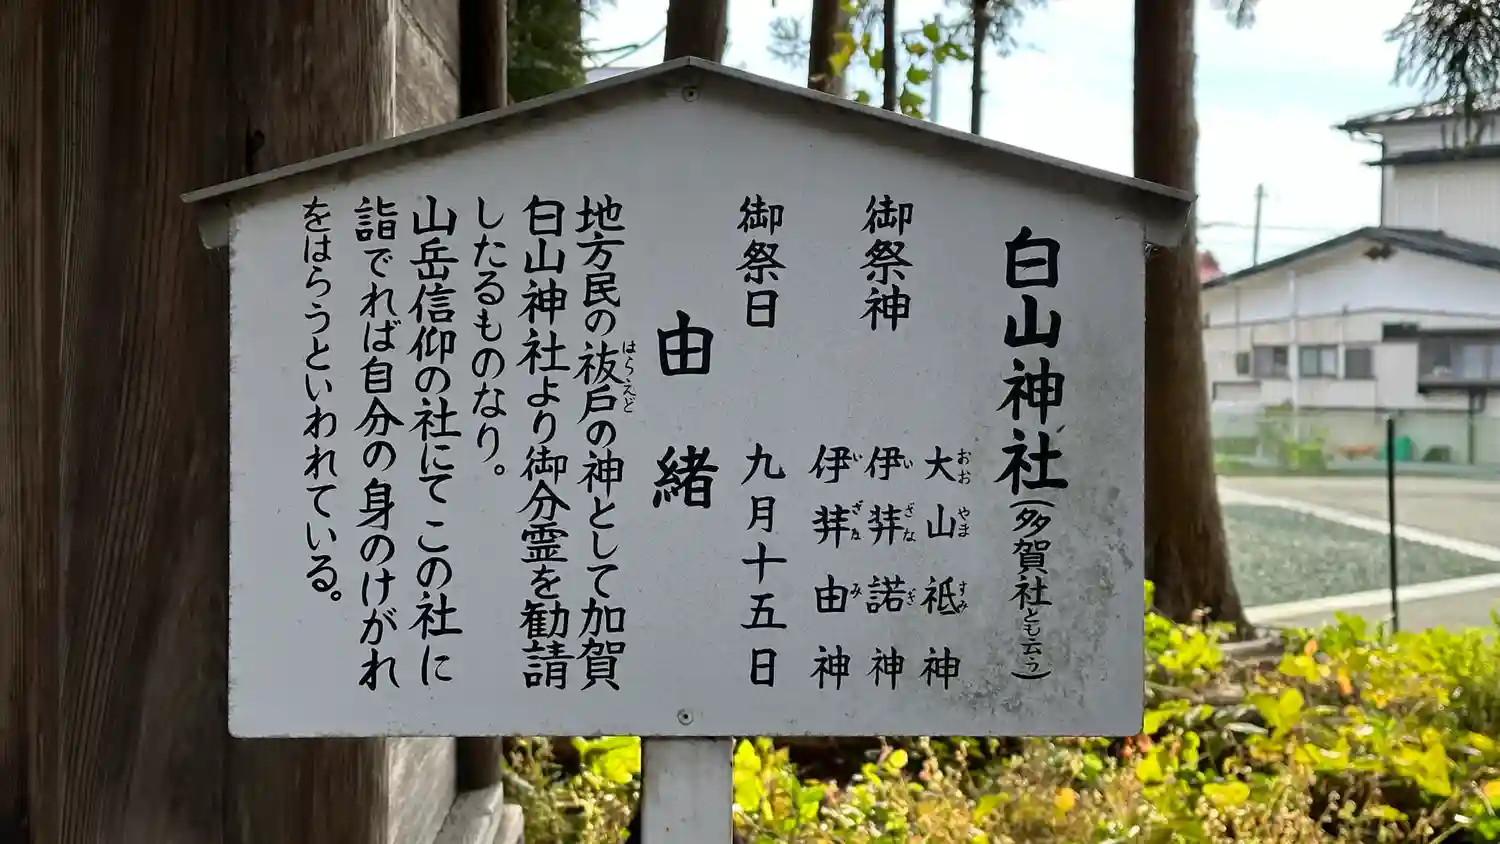 白山神社(多賀社とも云う)
御祭神
大山祗神
おおやますみ
伊弉諾神
いざなぎ
伊弉由神
いざなみ
御祭日 九月十五日
由緒
地方民の祓戸の神として加賀
はらえど
白山神社より御分霊を勧請
したるものなり。
山岳信仰の社にてこの社に
詣でれば自分の身のけがれ
をはらうといわれている。